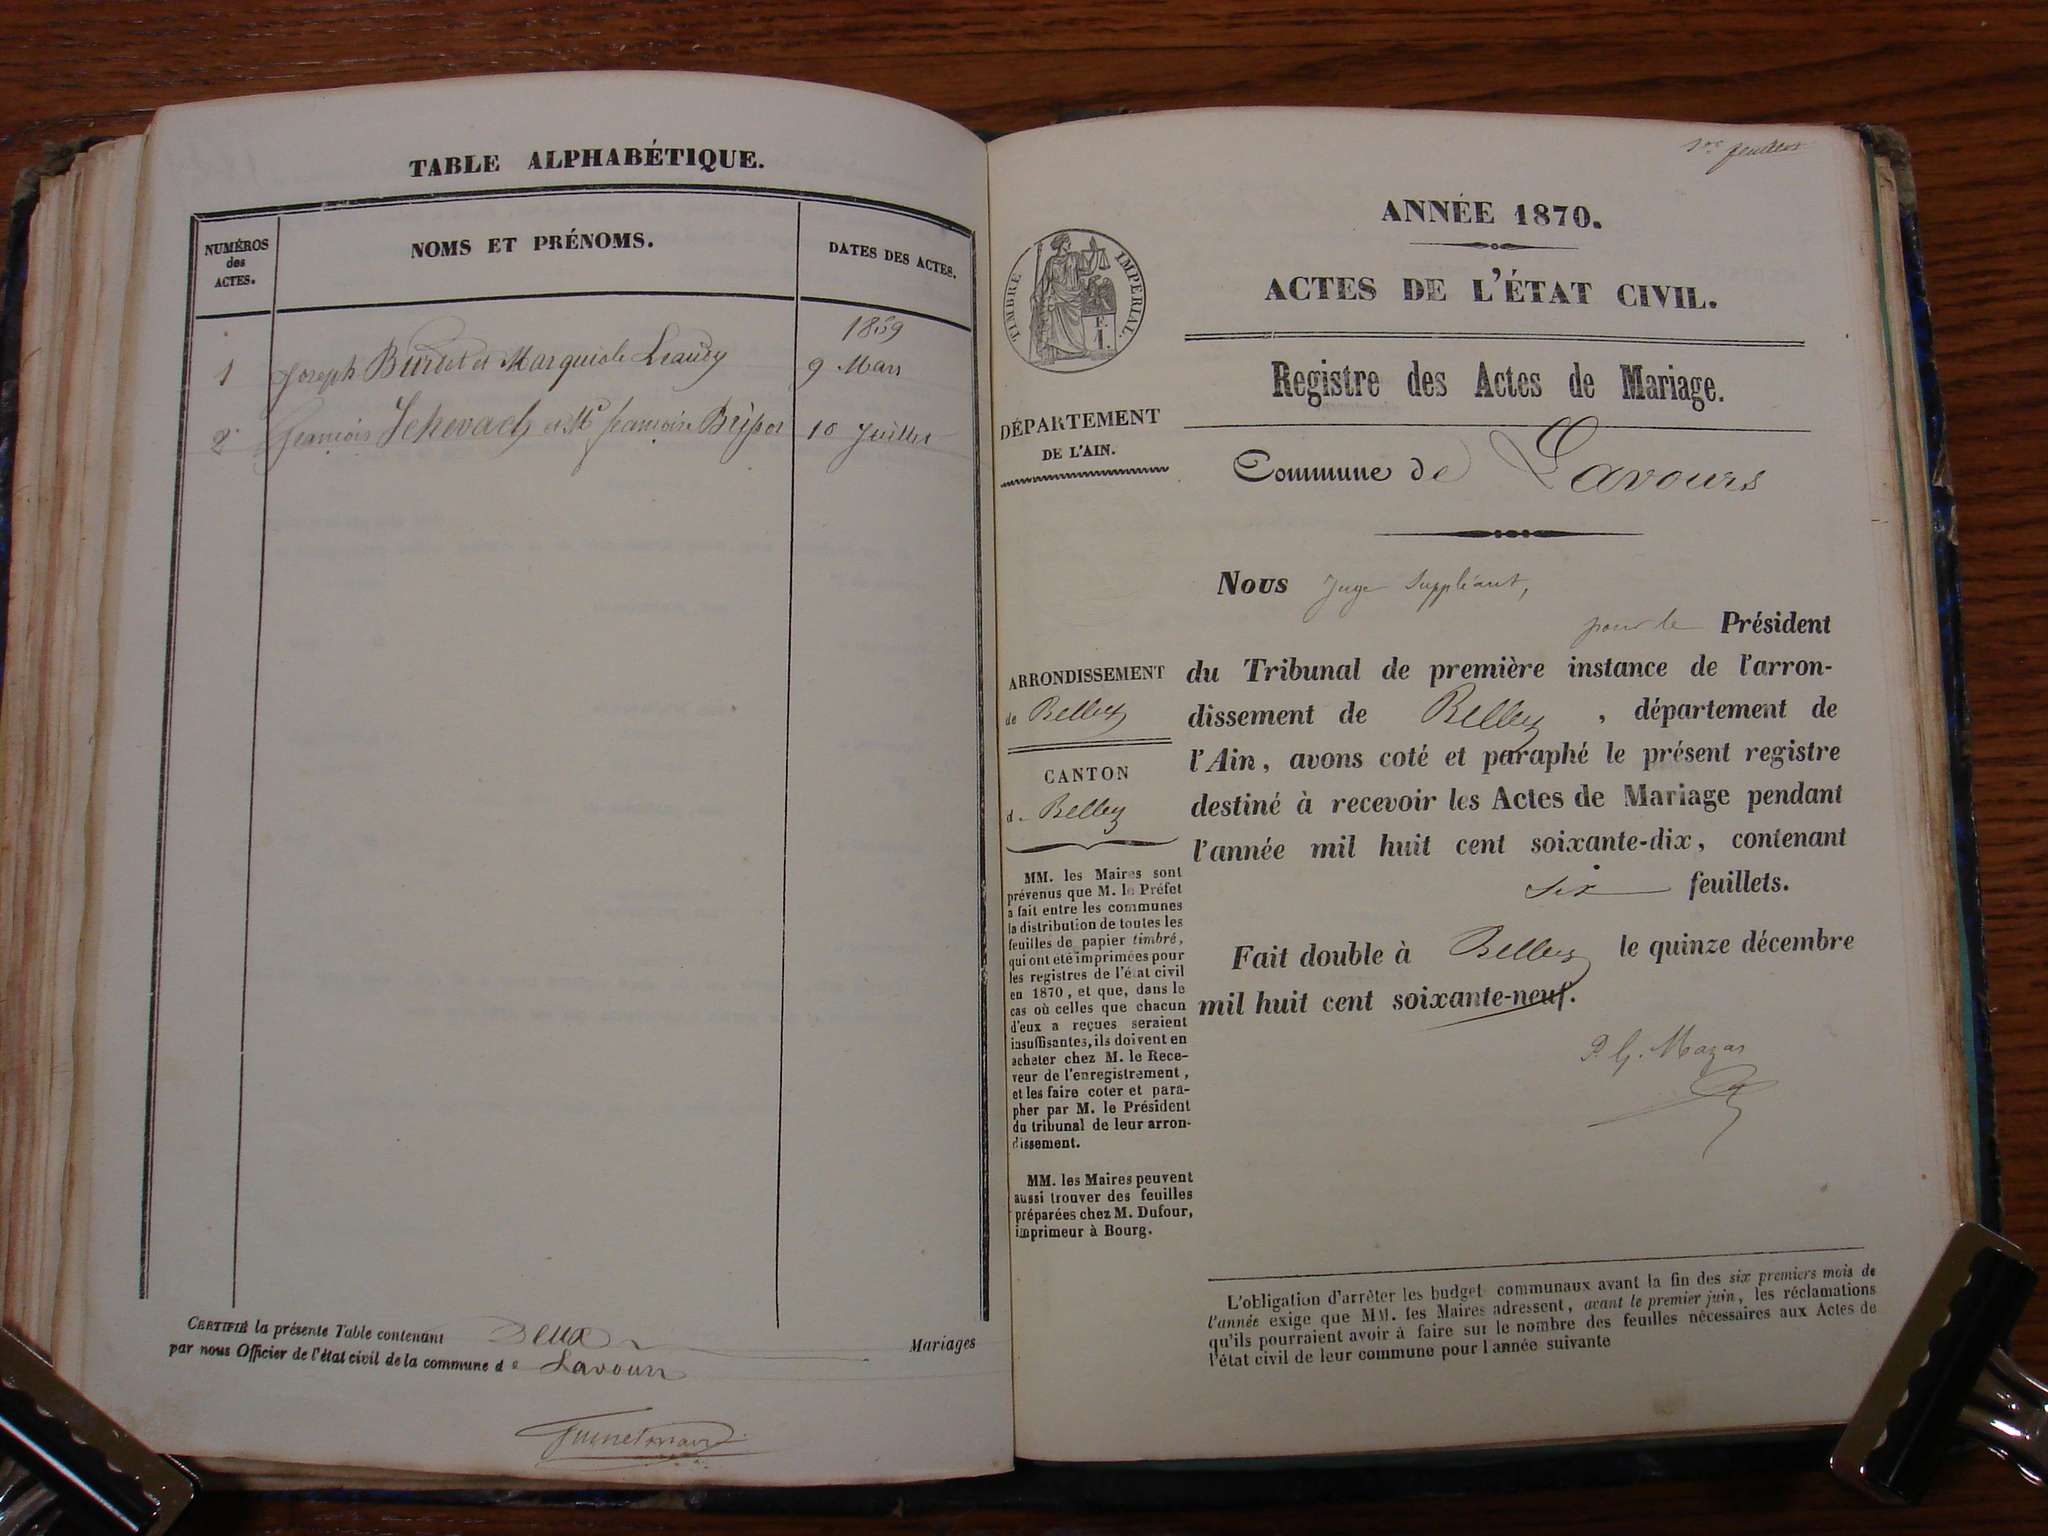 TABLE ALPHABÉTIQUE.
NUMÉROS
des
ACTES.
NOMS ET PRÉNOMS.
DATES DES ACTES.
1869
1 Joseph Burdet et Marguiole 9 Mars
2 François et Me françoise 10 Juillet
CERTIFIÉ la présente Table contenant Deux Mariages
par nous Officier de l'état civil de la commune de Lavours
1er feuillet
ANNÉE 1870.
ACTES DE L'ÉTAT CIVIL.
TIMBRE IMPÉRIAL.
Registre des Actes de Mariage.
DÉPARTEMENT
DE L'AIN.
Commune de Lavours
Nous Juge Suppléant,
pour le Président
du Tribunal de première instance de l'arron-
dissement de Belley, département de
l'Ain, avons coté et paraphé le présent registre
destiné à recevoir les Actes de Mariage pendant
l'année mil huit cent soixante-dix, contenant
six feuillets.
Fait double à Belley le quinze décembre
mil huit cent soixante-neuf.
P. G. Mazas
ARRONDISSEMENT
de Belley
CANTON
d. Belley
MM. les Maires sont
prévenus que M. le Préfet
a fait entre les communes
la distribution de toutes les
feuilles de papier timbré,
qui ont été imprimées pour
les registres de l'état civil
en 1870, et que, dans le
cas où celles que chacun
d'eux a reçues seraient
insuffisantes, ils doivent en
acheter chez M. le Rece-
veur de l'enregistrement,
et les faire coter et para-
pher par M. le Président
du tribunal de leur arron-
dissement.
MM. les Maires peuvent
aussi trouver des feuilles
préparées chez M. Dufour,
imprimeur à Bourg.
L'obligation d'arrêter les budget communaux avant la fin des six premiers mois de
l'année exige que MM. les Maires adressent, avant le premier juin, les réclamations
qu'ils pourraient avoir à faire sur le nombre des feuilles nécessaires aux Actes de
l'état civil de leur commune pour l'année suivante